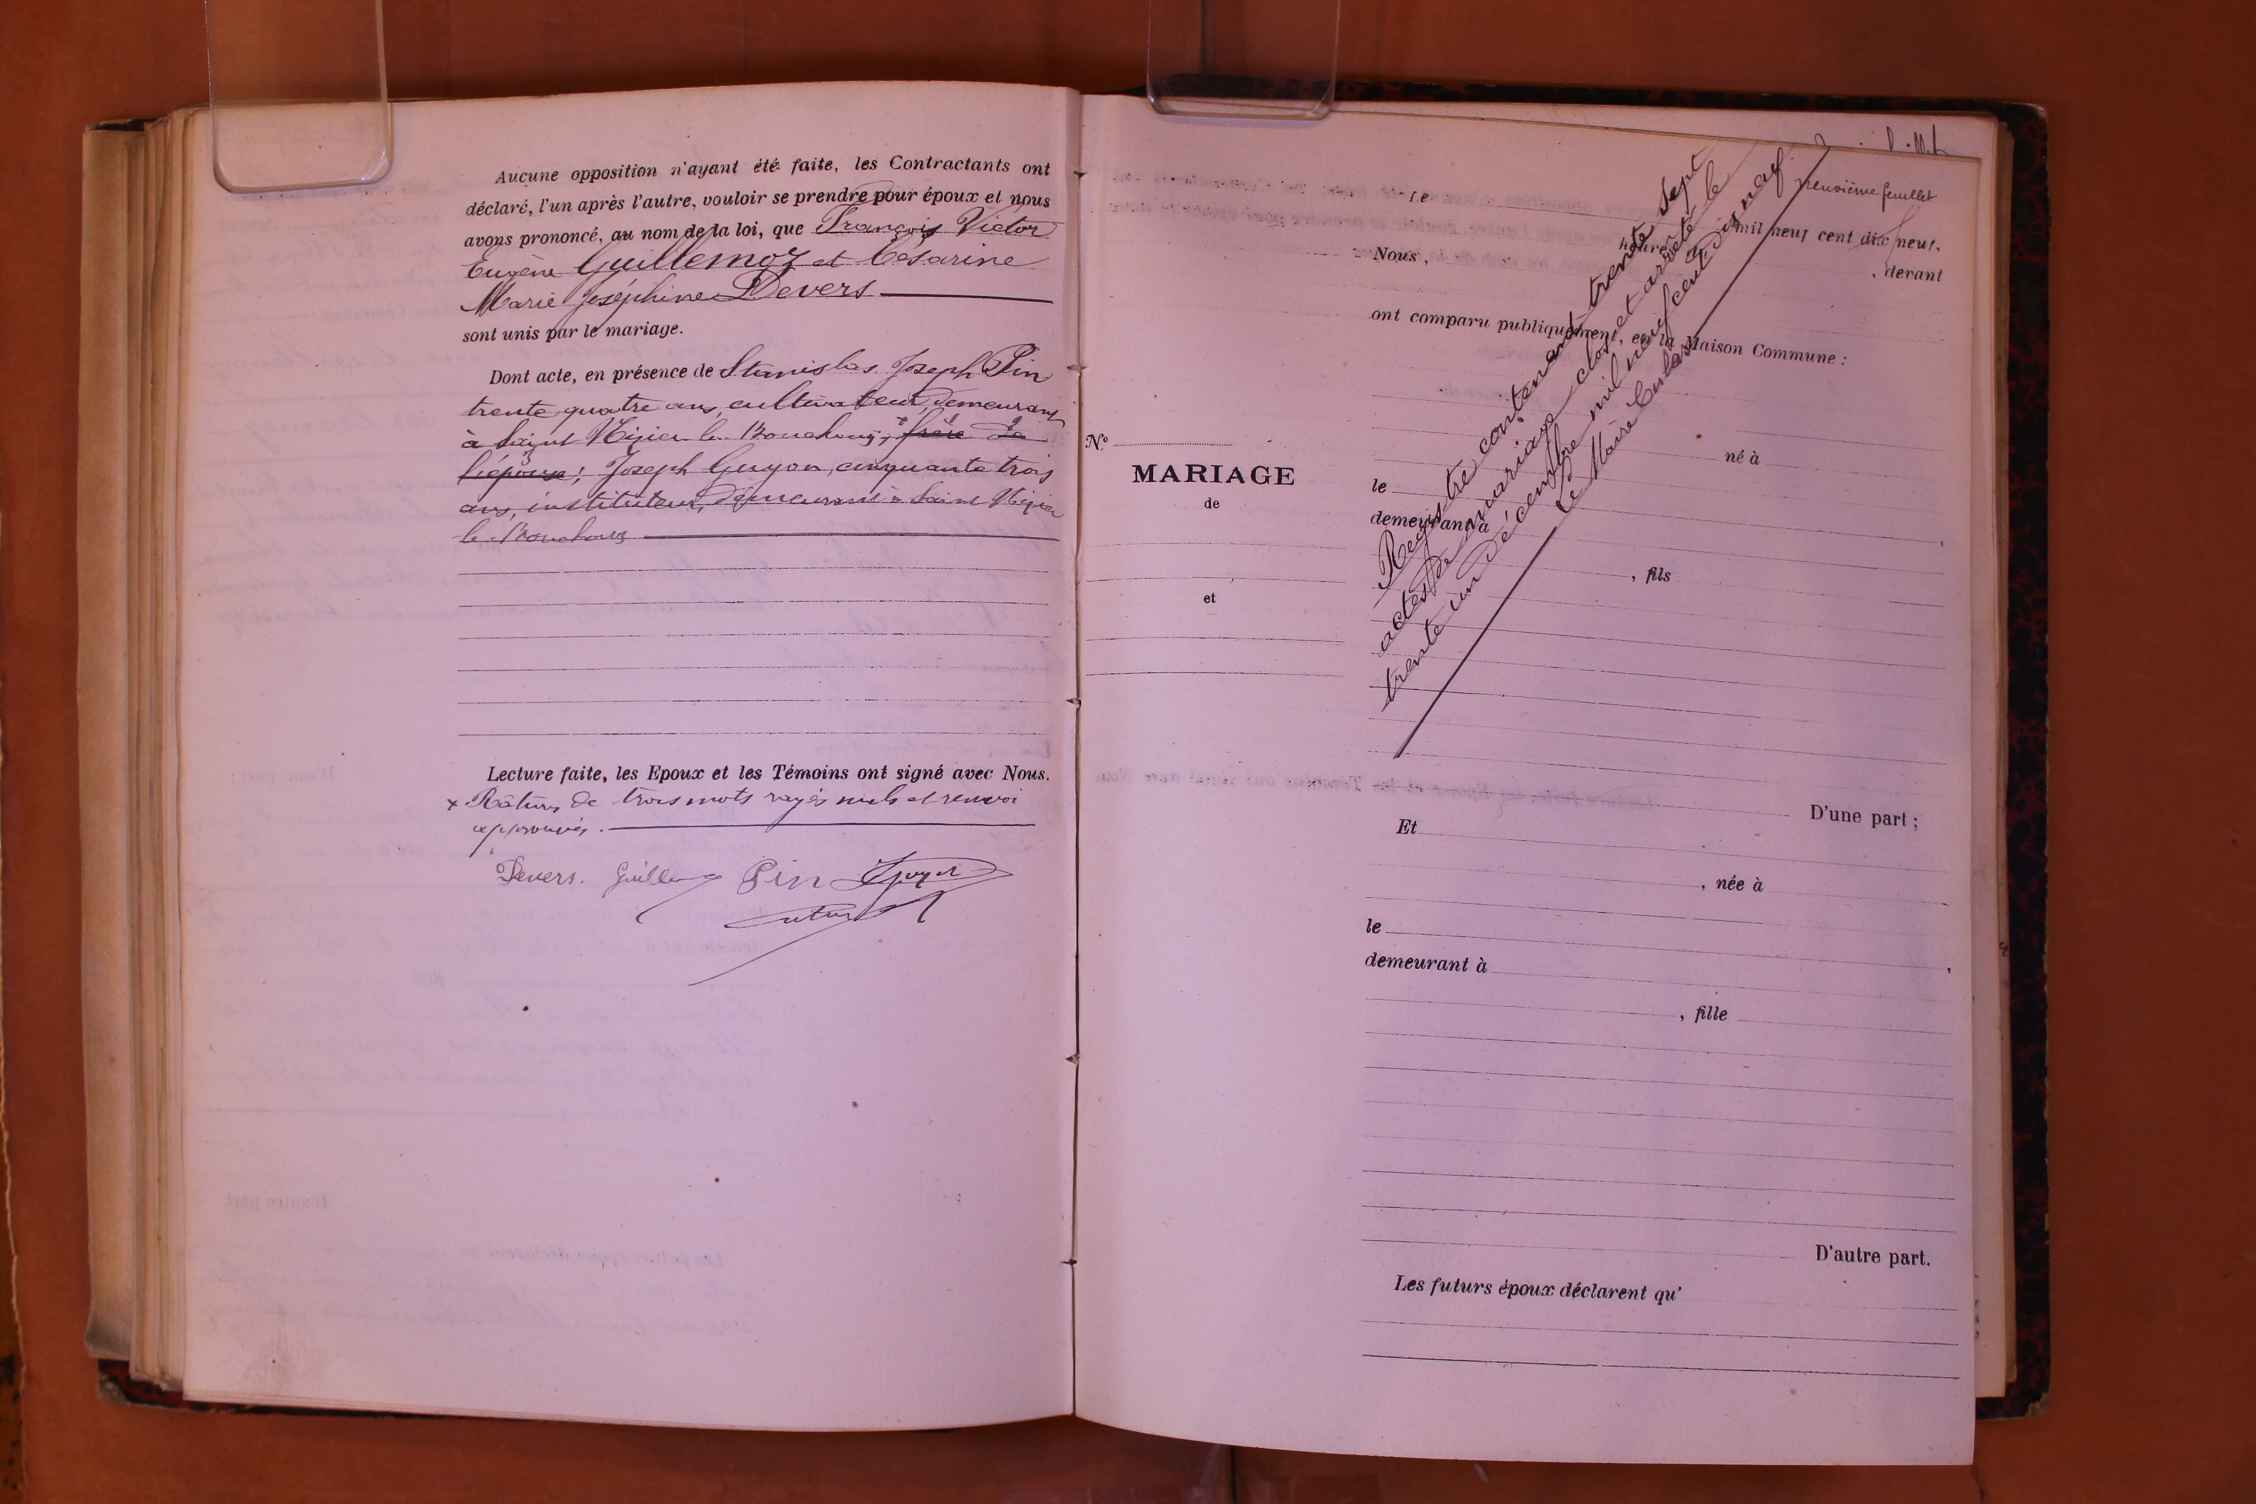 Aucune opposition n'ayant été faite, les Contractants ont
déclaré, l'un après l'autre, vouloir se prendre pour époux et nous
avons prononcé, au nom de la loi, que François Victor
Eugène Guillemoz et Césarine
Marie Joséphine Devers
sont unis par le mariage.
Dont acte, en présence de Stanislas Joseph Pin
trente quatre ans, cultivateur, demeurant
à Saint Nizier le Bouchoux, frère de
l'épouse; Joseph Guyon, cinquante trois
ans, instituteur, demeurant à Saint Nizier
le Bouchoux
Lecture faite, les Epoux et les Témoins ont signé avec Nous.
x Rature de trois mots rayés nuls et renvoi
approuvés.
Devers. Guillemoz Pin Guyon
feuillet
Le
heures mil neuf cent dix neuf,
Nous, , devant
ont comparu publiquement, en la Maison Commune :
Nº
MARIAGE
de
et
né à
le
demeurant à ,
, fils
Registre contenant trente sept
actes de mariage clos et arrêté le
trente un décembre mil neuf cent dix neuf
Le Maire
D'une part ;
Et
, née à
le
demeurant à ,
, fille
D'autre part.
Les futurs époux déclarent qu'